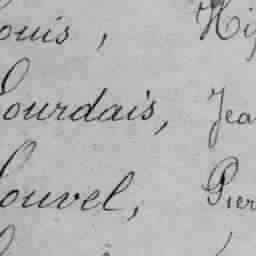 ouis, Hip
ourdais, Jea
ouvel, Pier